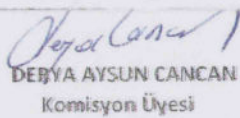 DERYA AYSUN CANCAN
Komisyon Üyesi